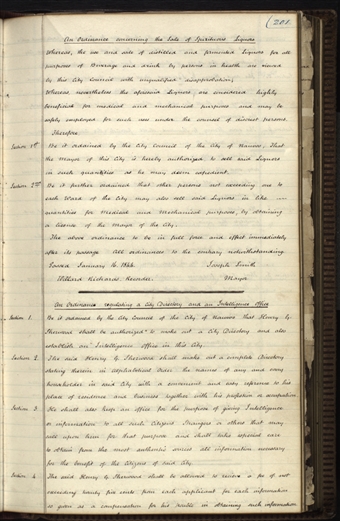 (201.
An Ordinance concerning the Sale of Spirituous Liquors
Whereas, the use and sale of distilled and fermented Liquors for all
purposes of Beverage and drink by persons in health are viewed
by this City Council with unqualified disapprobation;
Whereas nevertheless the aforesaid Liquors are considered highly
beneficial for medical and mechanical purposes and may be
safely employed for such uses under the counsel of discreet persons.
Therefore.
Section 1st Be it ordained by the City Council of the City of Nauvoo, That
the Mayor of this City is hereby authorized to sell said Liquors
in such quantities as he may deem expedient.
Section 2nd Be it further ordained that other persons not exceeding one to
each Ward of the City may also sell said Liquors in like
quantities for Medical and Mechanical purposes, by obtaining
a license of the Mayor of the City.
The above ordinance to be in full force and effect immediately
after its passage. All ordinances to the contrary notwithstanding.
Passed January 16. 1844. Joseph Smith
Willard Richards, Recorder. Mayor
An Ordinance regulating a City Directory and an Intelligence Office
Section 1. Be it ordained by the City Council of the City of Nauvoo that Henry G.
Sherwood shall be authorized to make out a City Directory and also
establish an Intelligence office in this City.
Section 2. The said Henry G. Sherwood shall make out a complete Directory
stating therein in alphabetical order the names of any and every
householder in said City with a convenient and easy reference to his
place of residence and business together with his profession or occupation
Section 3. He shall also keep an office for the purpose of giving Intelligence
or information to all such Citizens Strangers or others that may
call upon him for that purpose and shall take especial care
to obtain from the most authentic sources all information necessary
for the benefit of the Citizens of said City.
Section 4. The said Henry G. Sherwood shall be allowed to receive a fee of not
exceeding twenty five cents from each applicant for each information
so given as a compensation for his profits in obtaining such information